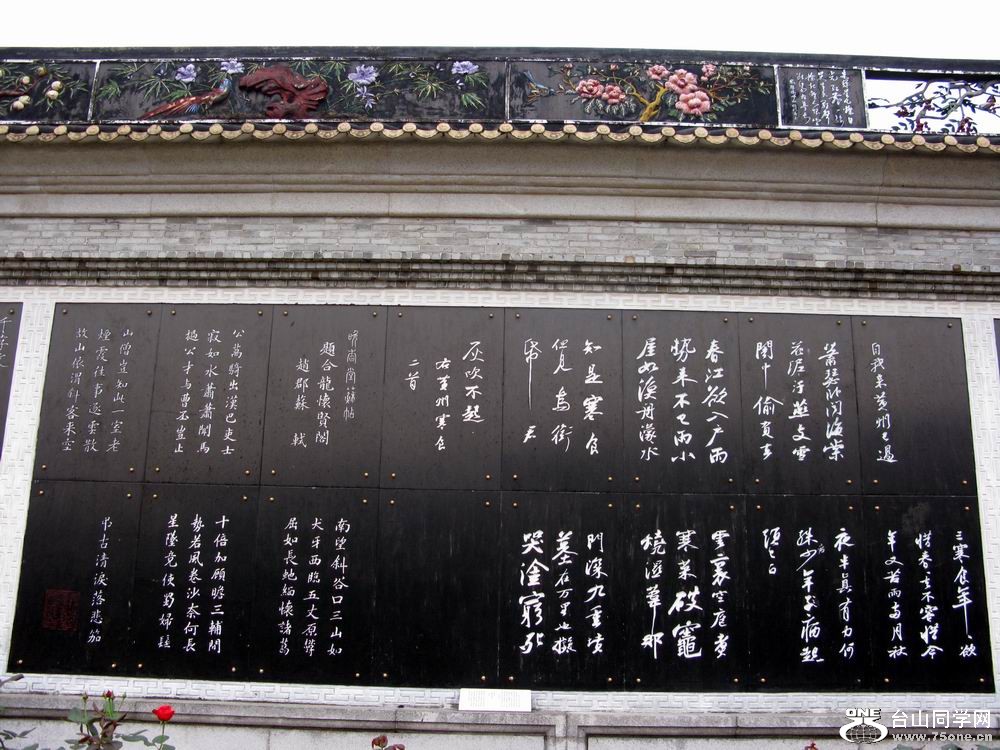 自我来黄州已過
三寒食年〻欲
惜春春不容惜今
年又苦雨兩月秋
蕭瑟卧聞海棠
花泥汙燕支雪
闇中偷負去
夜半真有力何
殊少年子病起
須已白
春江欲入户雨
勢来不已雨小
屋如漁舟濛水
雲裏空庖煑
寒菜破竈
燒溼葦那
知是寒食
但見烏銜
帋 君
門深九重墳
墓在万里也擬
哭塗窮死
灰吹不起
右黄州寒食
二首
晚香堂蘇帖
題合龍懷賢閣
趙郡蘇軾
南望斜谷口三山如
犬牙西臨五丈原欝
屈如長地緬懷諸葛
公萬騎出漢巴吏士
寂如水蕭蕭聞馬
檛公才与曹丕豈止
十倍加顧瞻三輔間
勢若風卷沙奈何長
星墜竟使蜀婦髽
山僧豈知此一室老
煙霞往事逐雲散
故山依渭斜客来空
吊古清淚落悲笳
ONE
台山同学网
www.75one.cn